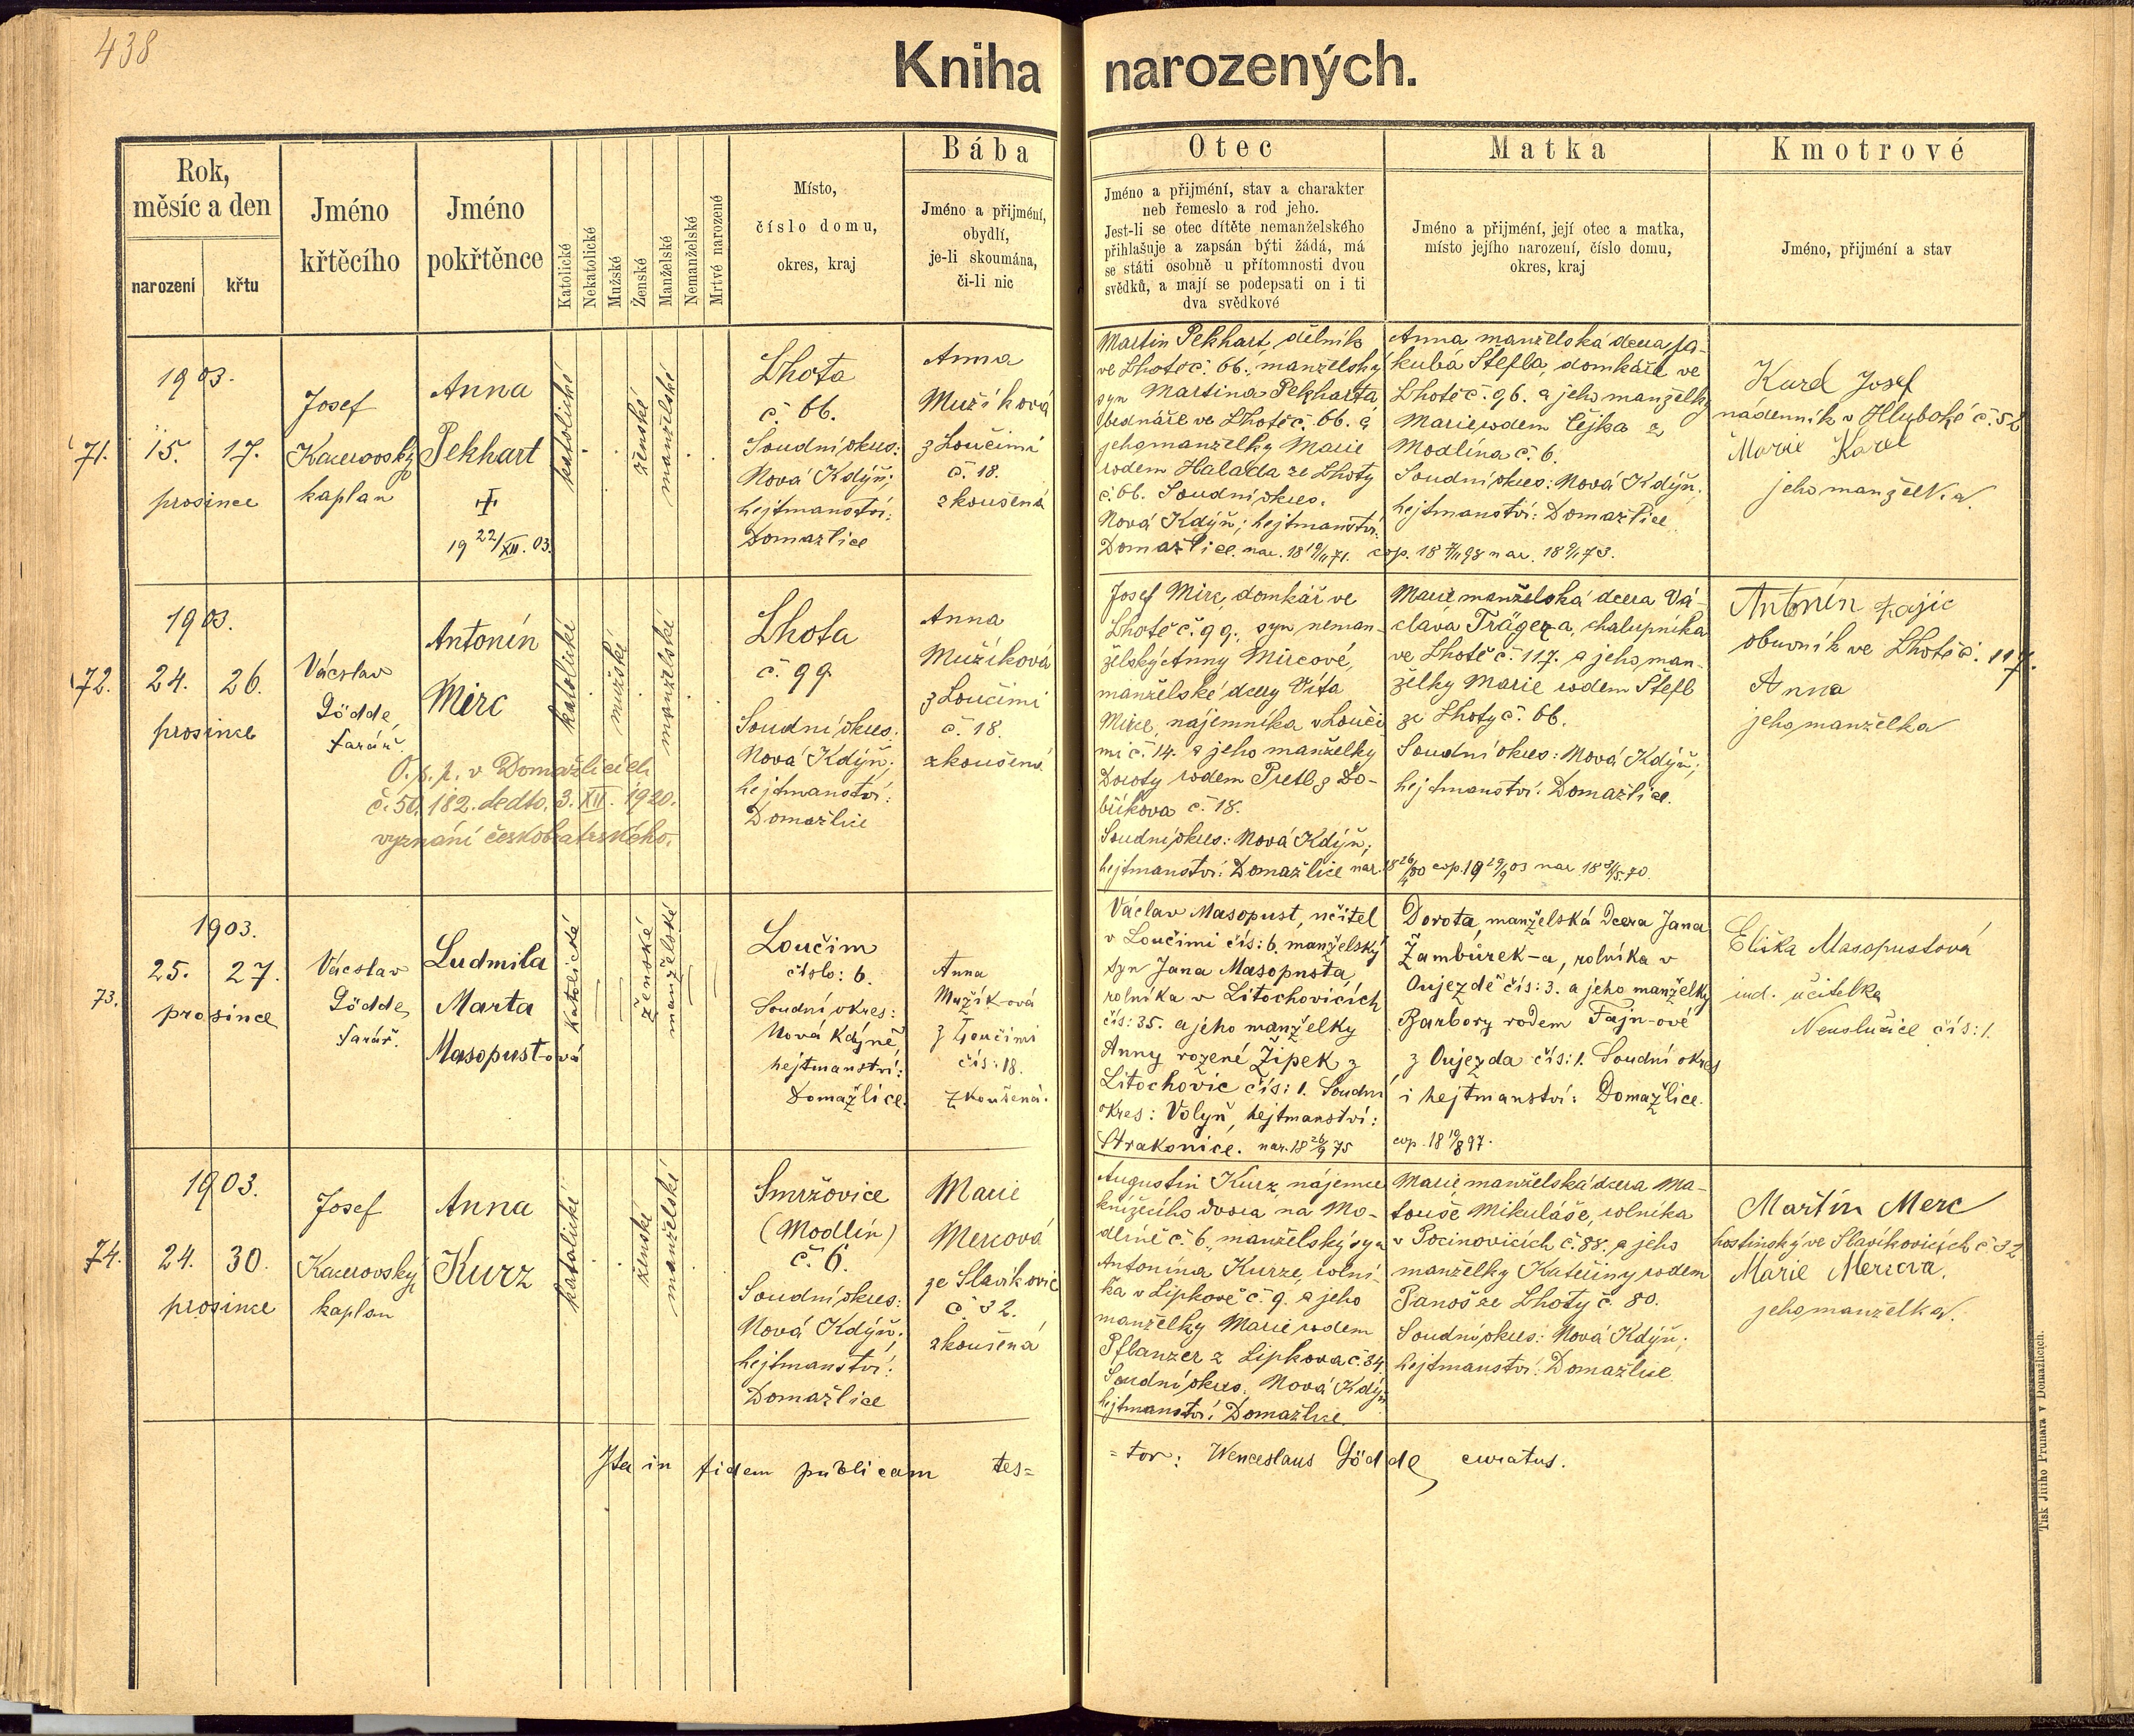 438
Kniha narozených.
Rok,
měsíc a den
narození
křtu
Jméno
křtěcího
Jméno
pokřtěnce
Katolické
Nekatolické
Mužské
Ženské
Manželské
Nemanželské
Mrtvé narozené
Místo,
číslo domu,
okres, kraj
Bába
Jméno a přijmení,
obydlí,
je-li skoumána,
či-li nic
Otec
Jméno a přijmení, stav a charakter
neb řemeslo a rod jeho.
Jest-li se otec dítěte nemanželského
přihlašuje a zapsán býti žádá, má
se státi osobně u přítomnosti dvou
svědků, a mají se podepsati on i ti
dva svědkové
Matka
Jméno a přijmení, její otec a matka,
místo jejího narození, číslo domu,
okres, kraj
Kmotrové
Jméno, přijmení a stav
71.
1903.
15. 17.
prosince
Josef
Kacerovský
kaplan
Anna
Pekhart
✝
19 22/XII. 03.
katolické
ženské
manželské
Lhota
č. 66.
Soudní okres:
Nová Kdýň;
hejtmanství:
Domažlice
Anna
Mužíková
z Loučimi
č. 18.
zkoušená
Martin Pekhart, dělník
ve Lhotě č. 66., manželský
syn Martina Pekharta
bednáře ve Lhotě č. 66. a
jeho manželky Marie
rodem Halada ze Lhoty
č. 66. Soudní okres:
Nová Kdýň; hejtmanství:
Domažlice. nar. 18 19/11 71.
Anna, manželská dcera Ja-
kuba Štefla, domkáře ve
Lhotě č. 96. a jeho manželky
Marie rodem Čejka z
Modlína č. 6.
Soudní okres: Nová Kdýň.
hejtmanství: Domažlice
cop. 18 98 nar. 18 73.
Kard Josef
nádenník v Hluboké č. 52
Marie Kard
jeho manželka
72.
1903.
24. 26.
prosince
Václav
Gödde,
farář.
Antonín
Mirc
O. s. p. v Domažlicích
č. 50.182. dedto. 3. XII. 1920.
vyznání českobratrského.
katolické
mužské
manželské
Lhota
č. 99
Soudní okres:
Nová Kdýň;
hejtmanství:
Domažlice
Anna
Mužíková
z Loučimi
č. 18.
zkoušená
Josef Mirc, domkář ve
Lhotě č. 99., syn neman-
želský Anny Mircové,
manželské dcery Víta
Mirce, nájemníka v Louči
mi č. 14. a jeho manželky
Doroty rodem Pretl z Do-
bříkova č. 18.
Soudní okres: Nová Kdýň;
hejtmanství: Domažlice nar. 18 26/4 80
Marie manželská dcera Vá-
clava Trägera, chalupníka
ve Lhotě č. 117. a jeho man-
želky Marie rodem Štefl
ze Lhoty č. 66.
Soudní okres: Nová Kdýň;
hejtmanství: Domažlice.
cop. 19 29/9 03 nar. 18 70.
Antonín Zajíc
obuvník ve Lhotě č. 117.
Anna
jeho manželka
73.
1903.
25. 27.
prosince
Václav
Gödde,
farář.
Ludmila
Marta
Masopust-ová
Katolické
ženské
manželské
Loučim
číslo: 6.
Soudní okres:
Nová Kdýně
hejtmanství:
Domažlice.
Anna
Mužík-ová
z Loučimi
čís: 18.
zkoušená.
Václav Masopust, učitel
v Loučimi čís: 6. manželský
syn Jana Masopusta,
rolníka v Litochovicích
čís: 35. a jeho manželky
Anny rozené Žipek z
Litochovic čís: 1. Soudní
okres: Volyň, hejtmanství:
Strakonice. nar. 18 26/9 75
Dorota, manželská dcera Jana
Žambůrek-a, rolníka v
Oujezdě čís: 3. a jeho manželky
Barbory rodem Fajn-ové
z Oujezda čís: 1. Soudní okres
i hejtmanství: Domažlice.
cop. 18 19/8 97.
Eliška Masopustová
ind. učitelka
Neuslužice čís: 1.
74.
1903.
24. 30.
prosince
Josef
Kacerovský
kaplan
Anna
Kurz
katolické
ženské
manželské
Smržovice
(Modlín)
č. 6.
Soudní okres:
Nová Kdýň;
hejtmanství:
Domažlice
Marie
Mercová
ze Slavíkovic
č. 32.
zkoušená
Augustin Kurz, nájemce
knížecího dvora na Mo-
dlíně č. 6., manželský syn
Antonína Kurze, rolní-
ka v Lipkově č. 9. a jeho
manželky Marie rodem
Pflanzer z Lipkova č. 34
Soudní okres: Nová Kdýň
hejtmanství: Domažlice.
Marie, manželská dcera Ma-
touše Mikuláše, rolníka
v Pocinovicích č. 88. a jeho
manželky Kateřiny rodem
Panoš ze Lhoty č. 80.
Soudní okres: Nová Kdýň;
hejtmanství: Domažlice
Martin Merc
hostinský ve Slavíkovicích č 32
Marie Mercova.
jeho manželka.
Ita in fidem publicam tes=
=tor: Wenceslaus Gödde, curatus.
Tisk Jiřího Prunara v Domažlicích.